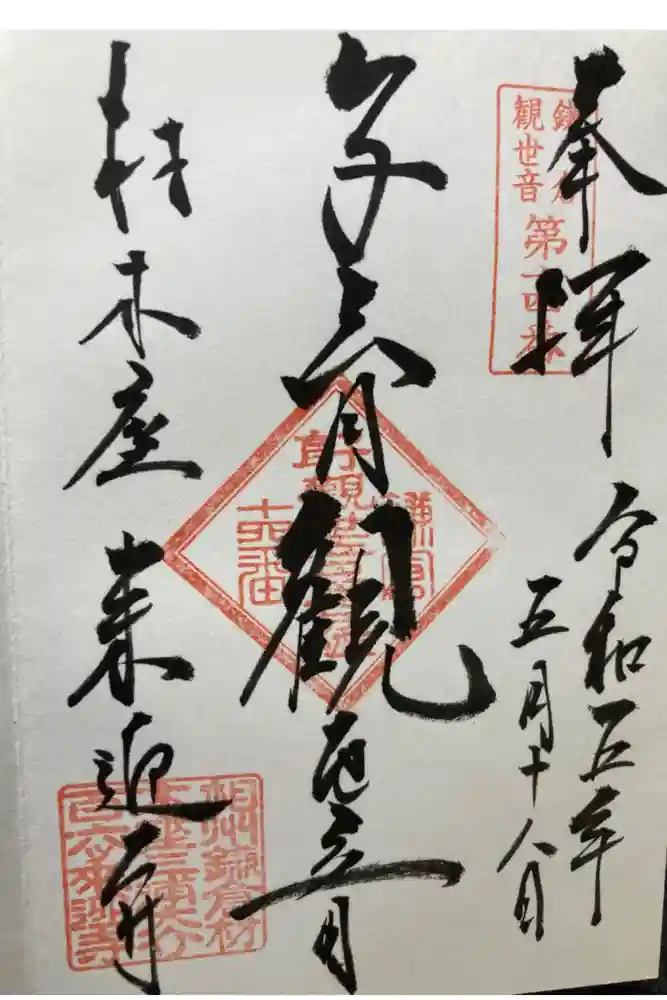 奉拝
鎌倉
観世音
第十四番
令和五年
五月十八日
子育観世音
鎌倉
十四番
材木座 来迎寺
相州鎌倉材